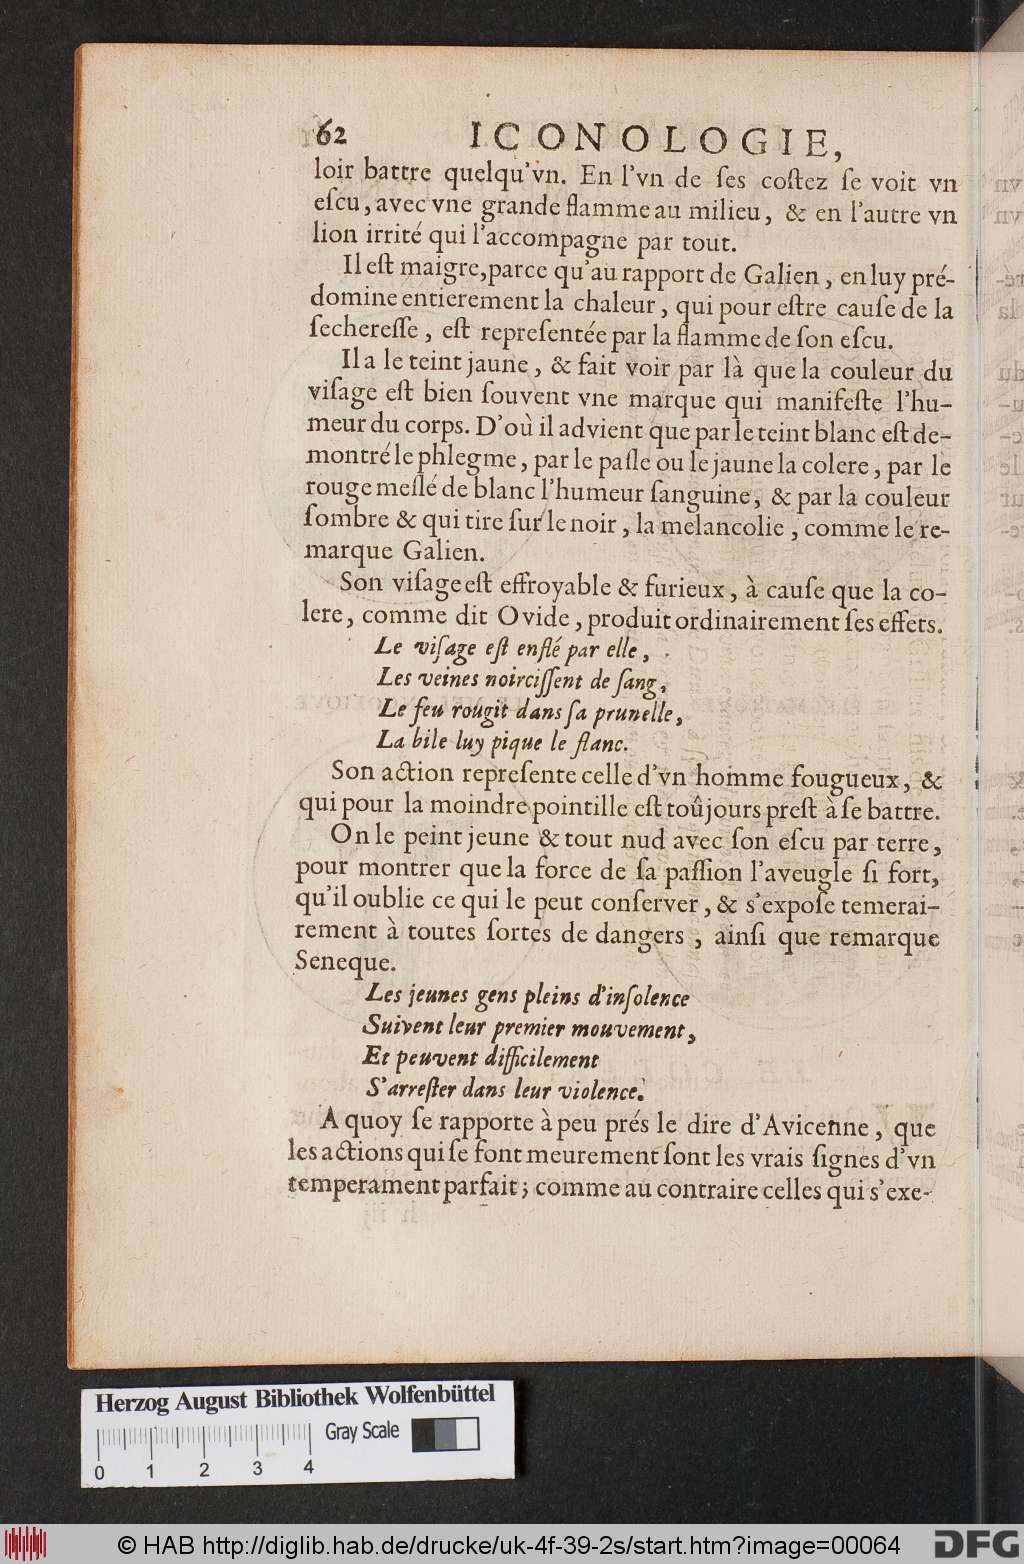 62 ICONOLOGIE,
loir battre quelqu'vn. En l'vn de ſes coſtez ſe voit vn
eſcu, avec vne grande flamme au milieu, & en l'autre vn
lion irrité qui l'accompagne par tout.
Il eſt maigre, parce qu'au rapport de Galien, en luy pré-
domine entierement la chaleur, qui pour eſtre cauſe de la
ſechereſſe, eſt repreſentée par la flamme de ſon eſcu.
Il a le teint jaune, & fait voir par là que la couleur du
viſage eſt bien ſouvent vne marque qui manifeſte l'hu-
meur du corps. D'où il advient que par le teint blanc eſt de-
montré le phlegme, par le paſle ou le jaune la colere, par le
rouge meſlé de blanc l'humeur ſanguine, & par la couleur
ſombre & qui tire ſur le noir, la melancolie, comme le re-
marque Galien.
Son viſage eſt effroyable & furieux, à cauſe que la co-
lere, comme dit Ovide, produit ordinairement ſes effets.
Le viſage eſt enflé par elle,
Les veines noirciſſent de ſang,
Le feu rougit dans ſa prunelle,
La bile luy pique le flanc.
Son action repreſente celle d'vn homme fougueux, &
qui pour la moindre pointille eſt toûjours preſt à ſe battre.
On le peint jeune & tout nud avec ſon eſcu par terre,
pour montrer que la force de ſa paſſion l'aveugle ſi fort,
qu'il oublie ce qui le peut conſerver, & s'expoſe temerai-
rement à toutes ſortes de dangers, ainſi que remarque
Seneque.
Les jeunes gens pleins d'inſolence
Suivent leur premier mouvement,
Et peuvent difficilement
S'arreſter dans leur violence.
A quoy ſe rapporte à peu prés le dire d'Avicenne, que
les actions qui ſe font meurement ſont les vrais ſignes d'vn
temperament parfait; comme au contraire celles qui s'exe-
Herzog August Bibliothek Wolfenbüttel
Gray Scale
0 1 2 3 4
© HAB http://diglib.hab.de/drucke/uk-4f-39-2s/start.htm?image=00064
DFG